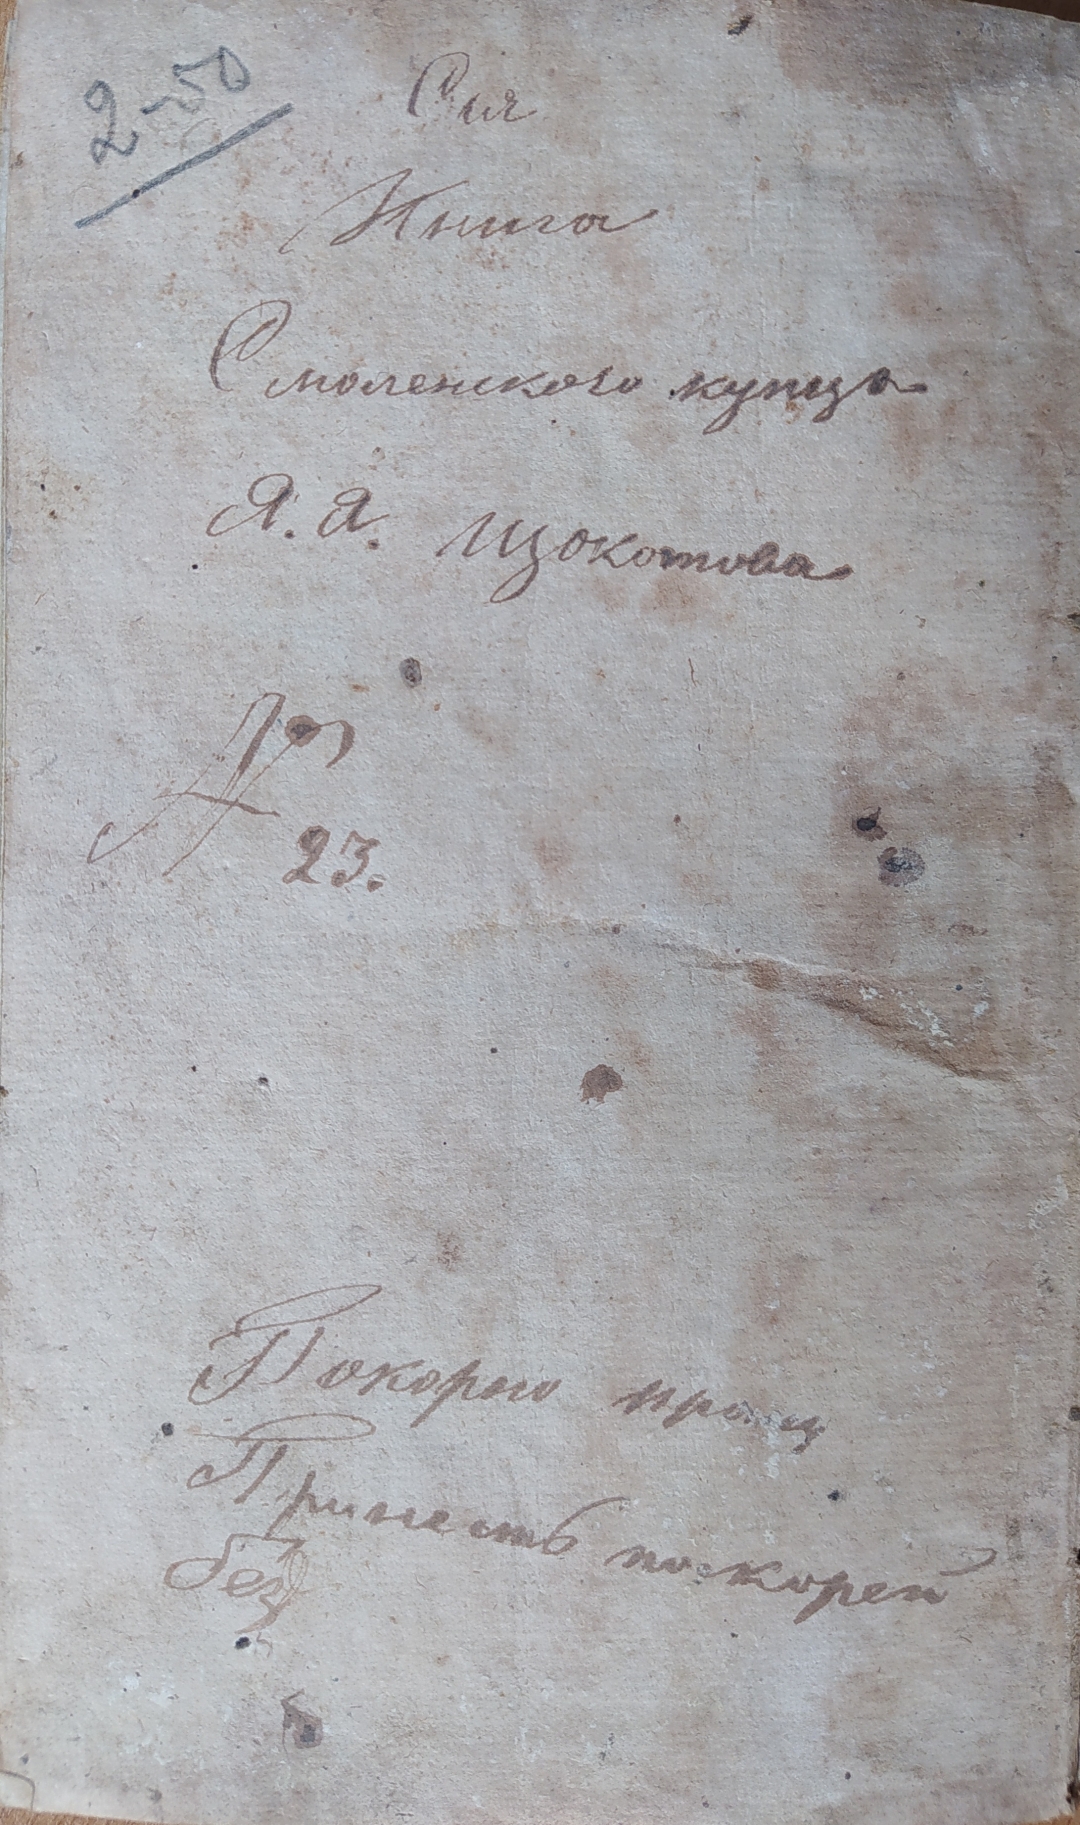 2-50
Сия
Книга
Смоленского купца
Я. Я. Щокотова
№
23.
Покорно прошу
Принесть поскорей
без